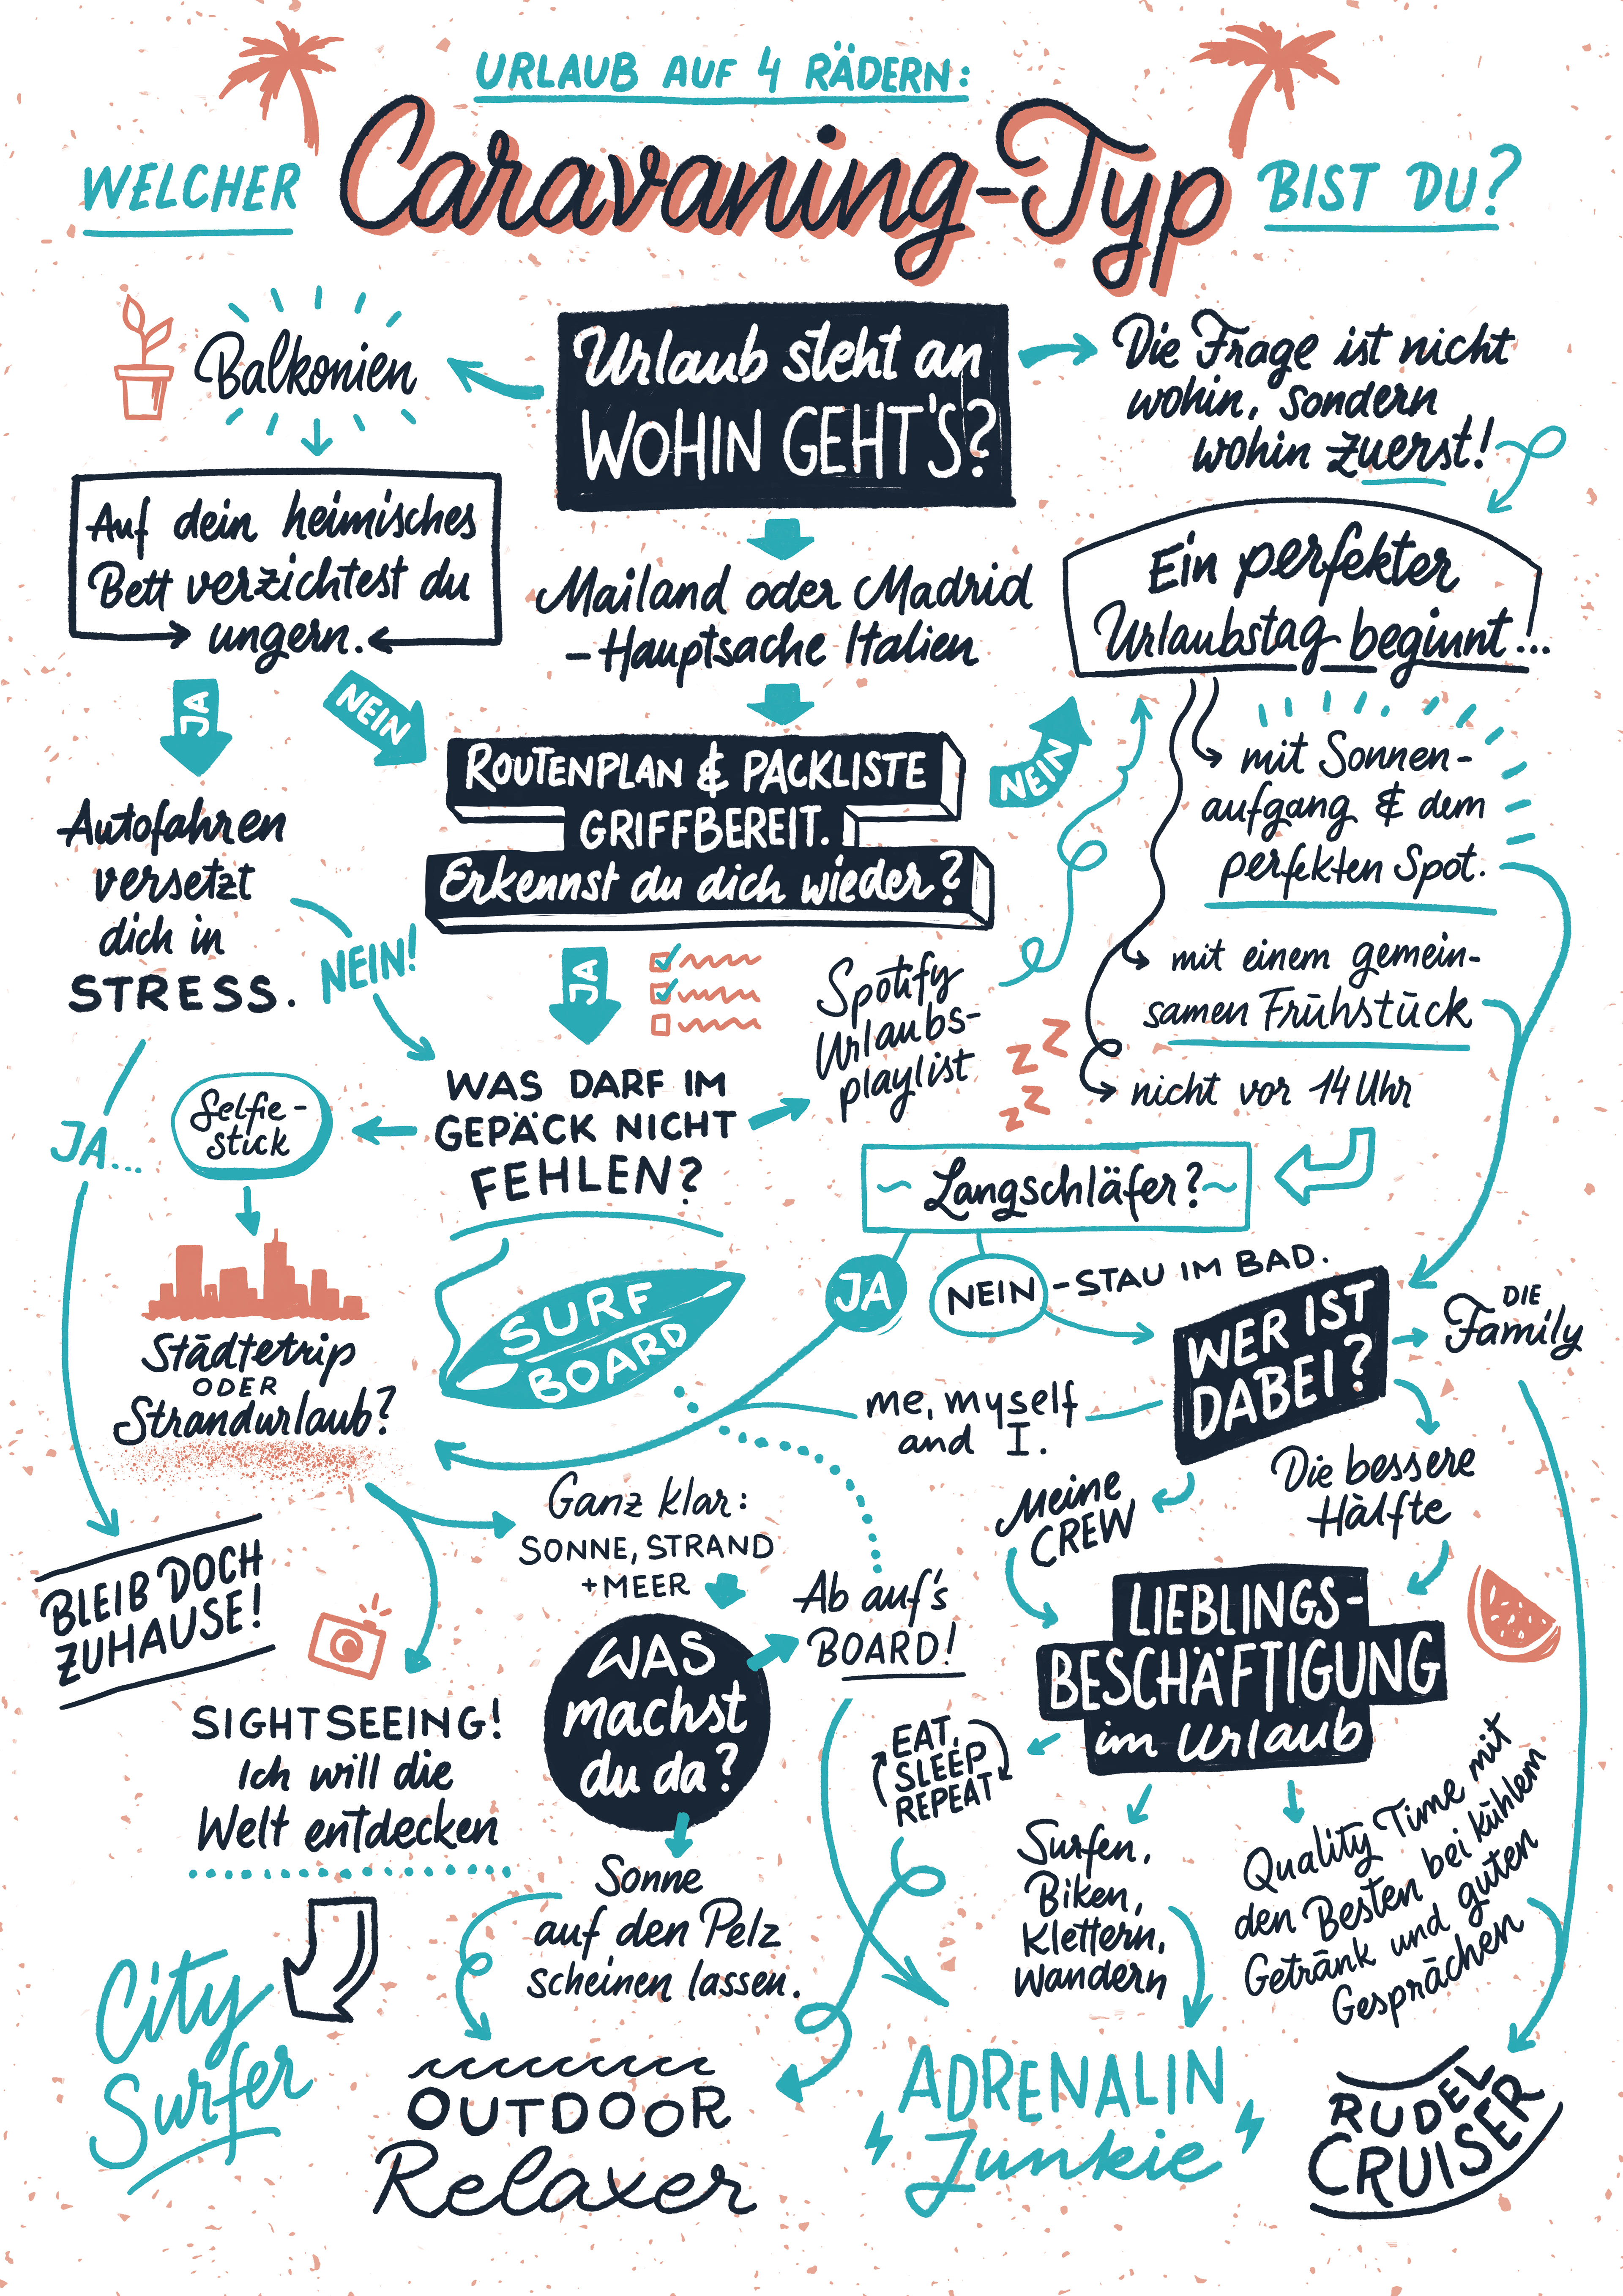 URLAUB AUF 4 RÄDERN:
WELCHER Caravaning-Typ BIST DU?
Balkonien
Urlaub steht an
WOHIN GEHT'S?
Die Frage ist nicht
wohin, sondern
wohin zuerst!
Auf dein heimisches
Bett verzichtest du
ungern.
Mailand oder Madrid
– Hauptsache Italien
Ein perfekter
Urlaubstag beginnt...
JA
NEIN
ROUTENPLAN & PACKLISTE
GRIFFBEREIT.
Erkennst du dich wieder?
NEIN
mit Sonnen-
aufgang & dem
perfekten Spot.
Autofahren
versetzt
dich in
STRESS.
NEIN!
JA
Spotify
Urlaubs-
playlist
mit einem gemein-
samen Frühstück
zz
zz
nicht vor 14 Uhr
JA...
Selfie-
stick
WAS DARF IM
GEPÄCK NICHT
FEHLEN?
~ Langschläfer? ~
JA
NEIN - STAU IM BAD.
SURF
BOARD
WER IST
DABEI?
DIE
Family
Städtetrip
ODER
Strandurlaub?
me, myself
and I.
Meine
CREW
Die bessere
Hälfte
Ganz klar:
SONNE, STRAND
+ MEER
BLEIB DOCH
ZUHAUSE!
WAS
machst
du da?
Ab auf's
BOARD!
LIEBLINGS-
BESCHÄFTIGUNG
im Urlaub
SIGHTSEEING!
Ich will die
Welt entdecken
EAT,
SLEEP
REPEAT
Surfen,
Biken,
Klettern,
Wandern
Quality Time mit
den Besten bei kühlem
Getränk und guten
Gesprächen
Sonne
auf den Pelz
scheinen lassen.
City
Surfer
OUTDOOR
Relaxer
ADRENALIN
Junkie
RUDEL
CRUISER